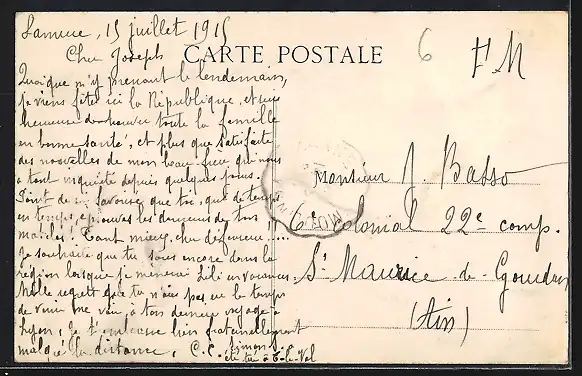 15 juillet 1915
Cher Joseph
CARTE POSTALE
6
F M
Quoique m'y prenant le lendemain,
je viens fêter ici la République, et suis
heureuse de trouver toute la famille
en bonne santé, et plus que satisfaite
des nouvelles de mon beau-frère qui nous
a tant inquiété depuis quelques jours.
que toi, que de temps
en temps, épouvas les douceurs de tros
Tant mieux, cher défenseur !!...
Je souhaite que tu sois encore dans la
région lorsque je mènerai Lili en vacances.
Mille regrets que tu n'aies pas eu le temps
de venir me voir, à ton dernier voyage à
Lyon, je t'embrasse bien fraternellement
malgré la distance, C.C. Simon
Monsieur J. Basso
6e Colonial 22e comp.
St Maurice de
(Ain)